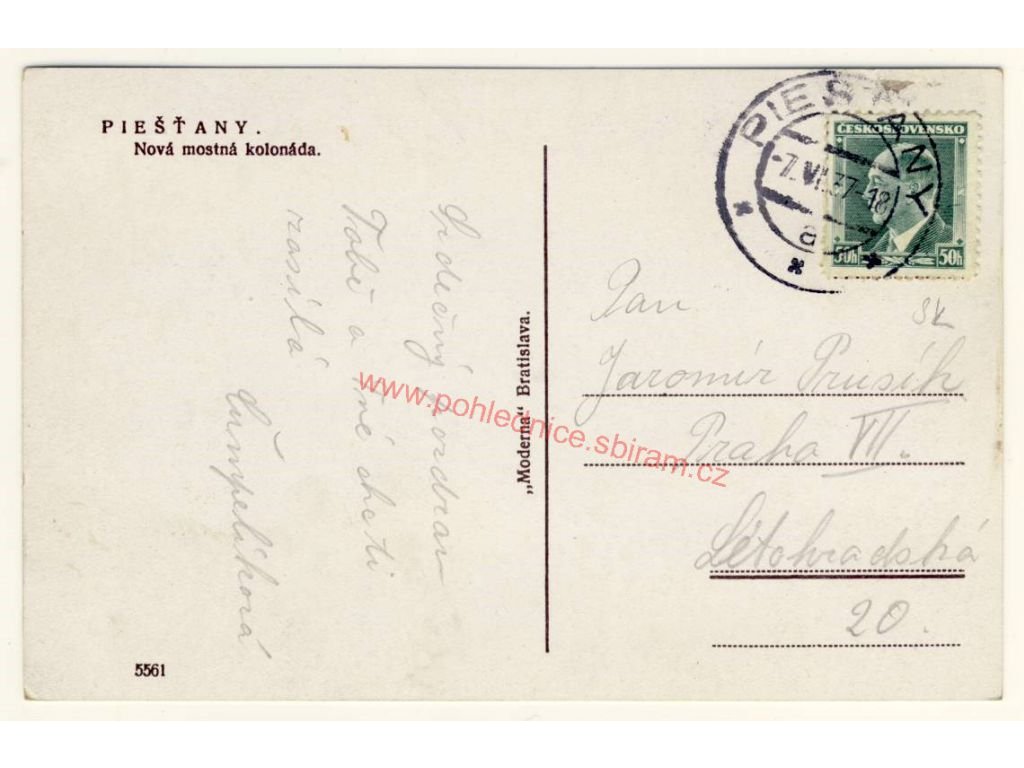 PIEŠŤANY.
Nová mostná kolonáda.
Srdečný pozdrav
Tobě a tvé choti
zasílá
Čumpelíková
5561
„Moderna" Bratislava.
PIEŠŤANY
-7.VI.37-18
a
ČESKOSLOVENSKO
50h 50h
Pan
Jaromír Prusík
Praha VII.
Letohradská
20.
www.pohlednice.sbiram.cz